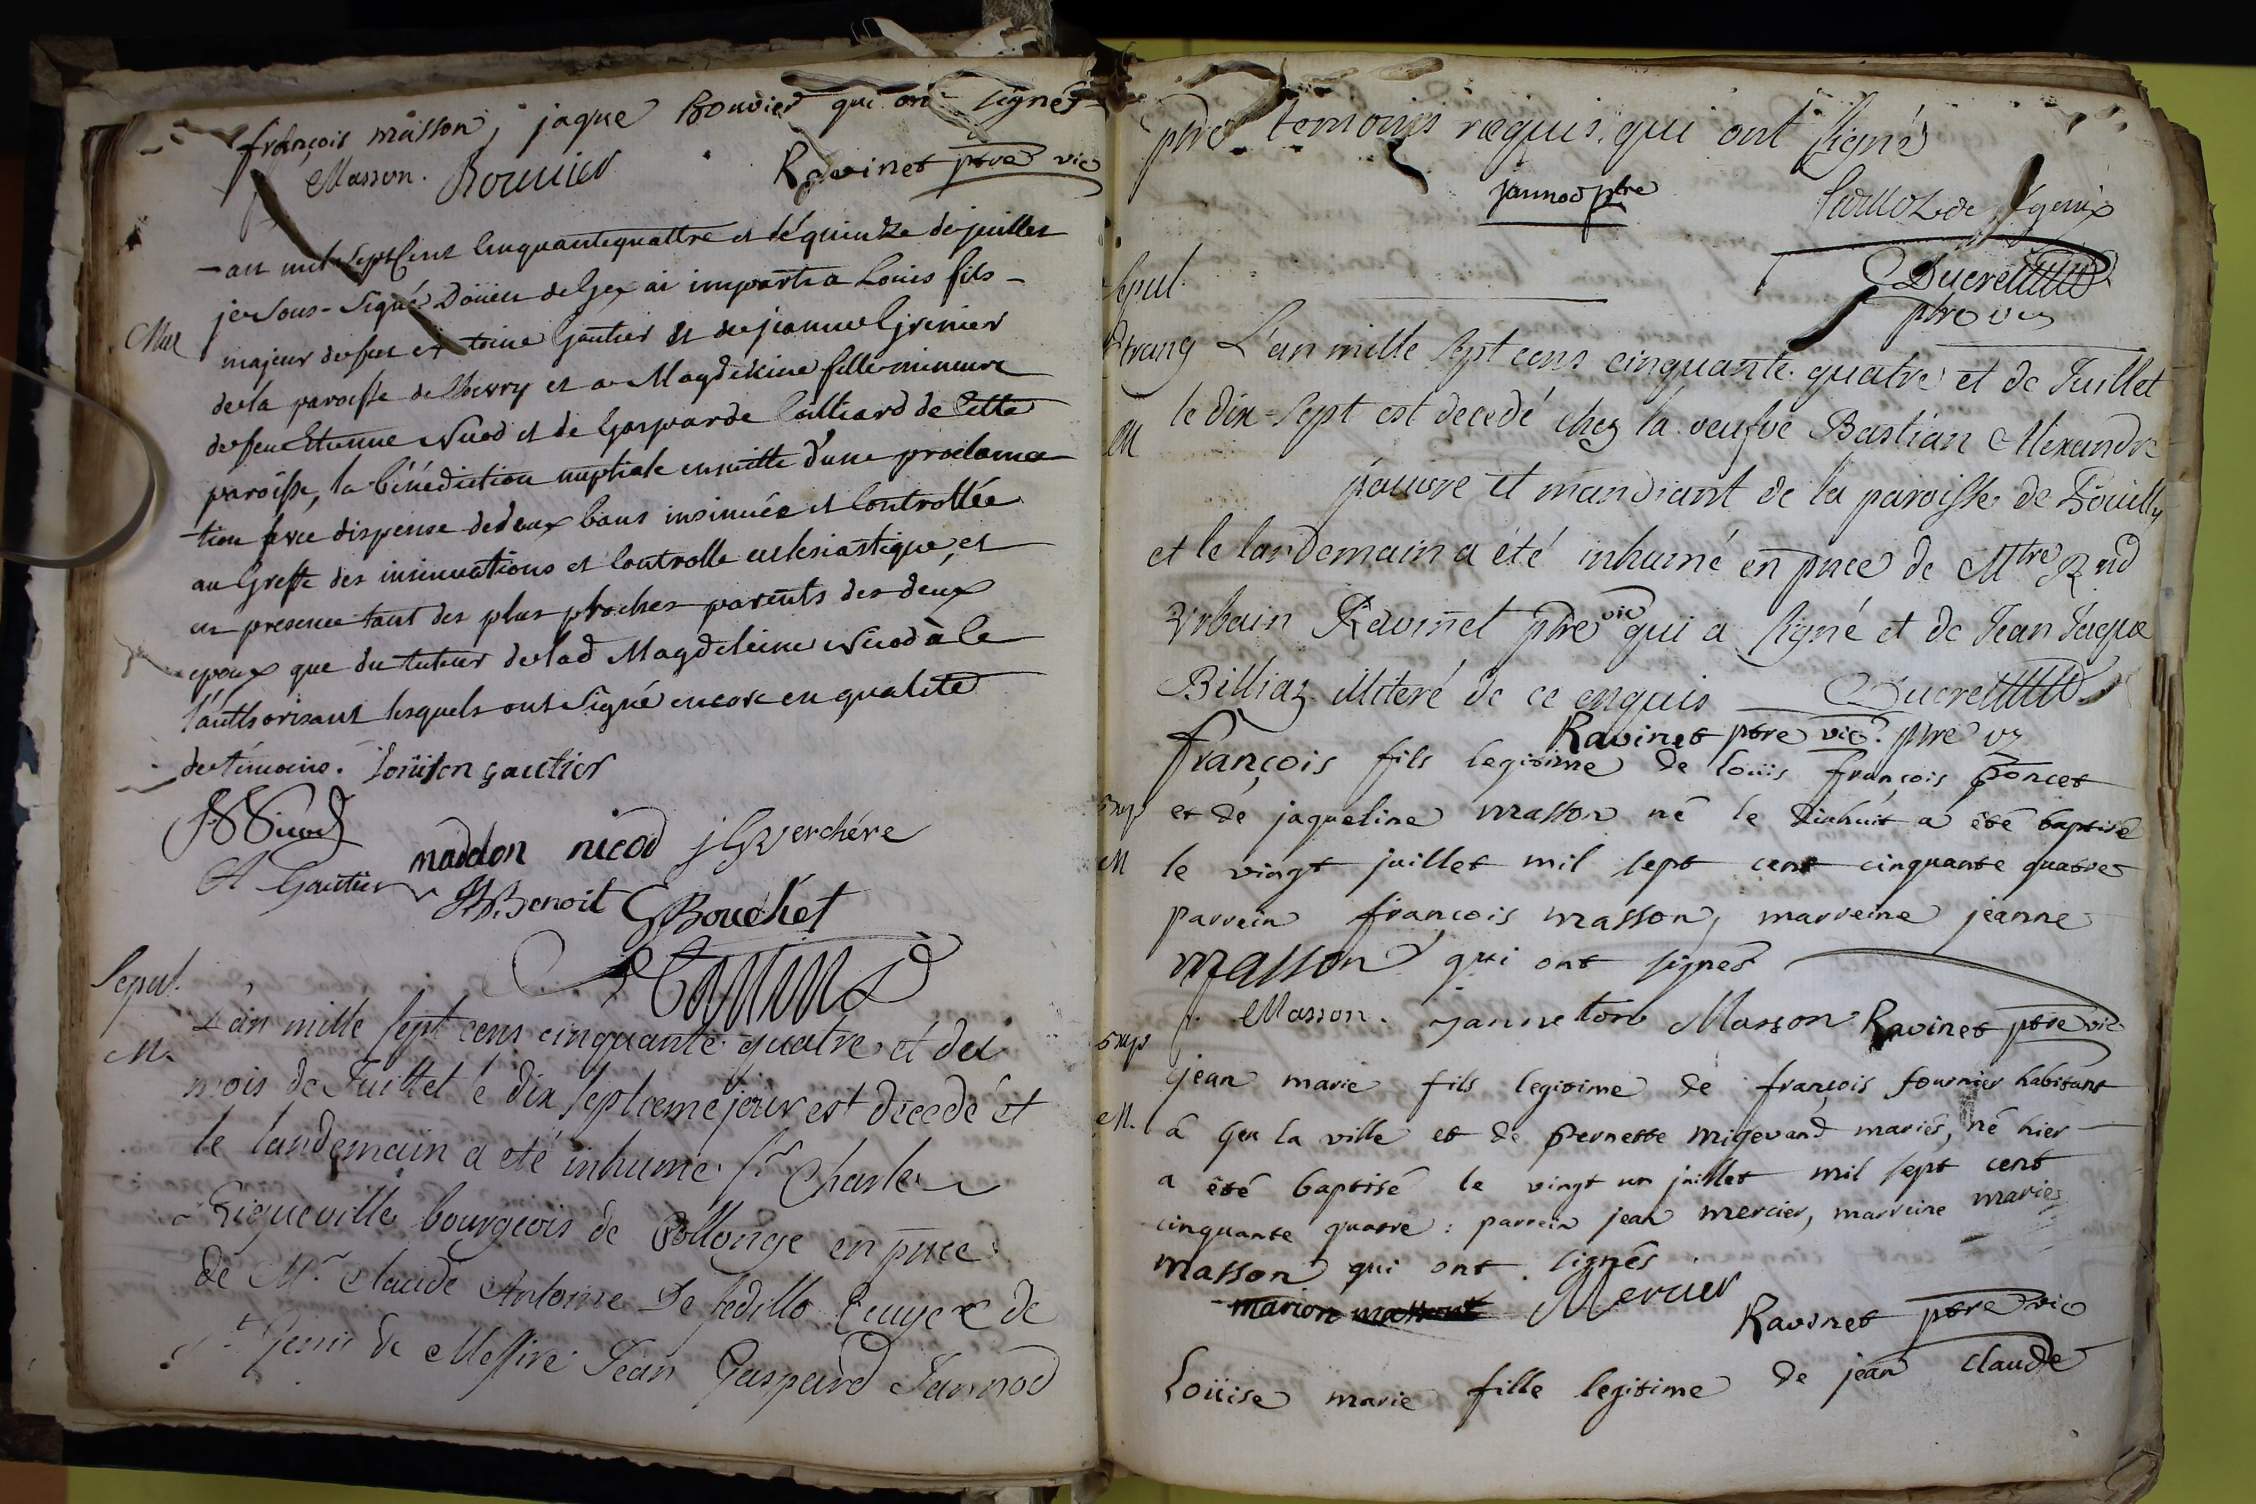 françois masson, jaque Bouvier qui ont signés
Masson. Bouvier Ravinet ptre vic
an mil sept cent cinquantequattre et le quinze de juillet
je sous-signé Doïen de Gex ai imparti a Louis fils
Mar
majeur de feu toine Gautier et de jeanne Grenier
de la paroisse de Chevry et a Magdeleine fille mineure
de feu Etienne Nicod et de Gasparde Calliard de cette
paroisse, la bénédiction nuptiale ensuitte d'une proclama
tion avec dispense de deux bans insinuée et controllée
au Greffe des insinuations et controlle eclesiastique, et
en presence tant des plus proches parents des deux
epoux que du tuteur de lad Magdeleine Nicod à ce
l'authorisant lesquels ont signé encore en qualité
de témoins. Loüison gautier
Nicod
madelon nicod j G Verchére
A Gautier Benoit GBouchet
Sepul.
L'an mille sept cens cinquante quatre et du
M.
mois de Juillet le dix septieme jour est décedé et
le landemain a eté inhumé sr Charle
Riqueville bourgeois de Collonge en pnce
de Mr Claude Antoine De sedillo Ecuyer de
st Genix de Messire Jean Gaspard Jannod
ptre temoins requis qui ont signé
jannod ptre de st genix
Ducret
ptre vic
Sepul.
etrang L'an mille sept cens cinquante quatre et de Juillet
M le dix-sept est decedé chez la veufve Bastian Alexandre
pauvre et mandiant de la paroisse de Pouilly
et le landemain a été inhumé en pnce de Mtre Rnd
Urbain Ravinet ptre vic qui a signé et de Jean Jaque
Billiaz illiteré de ce enquis Ducret
Ravinet ptre vic. ptre vic
françois fils legitime de loüis françois poncet
Bap et de jaqueline masson né le dixhuit a été baptisé
M le vingt juillet mil sept cent cinquante quatre
parrein françois masson, marreine jeanne
masson qui ont signés
f. Masson. janneton Masson Ravinet ptre vic
Bap
jean marie fils legitime de françois fournier habitant
M. à Gex la ville et de pernette migevand mariés, né hier
a été baptisé le vingt un juillet mil sept cent
cinquante quatre : parrein jean mercier, marreine marie
masson qui ont signés
marion Mercier
Ravinet ptre vic
Loüise marie fille legitime de jean claude